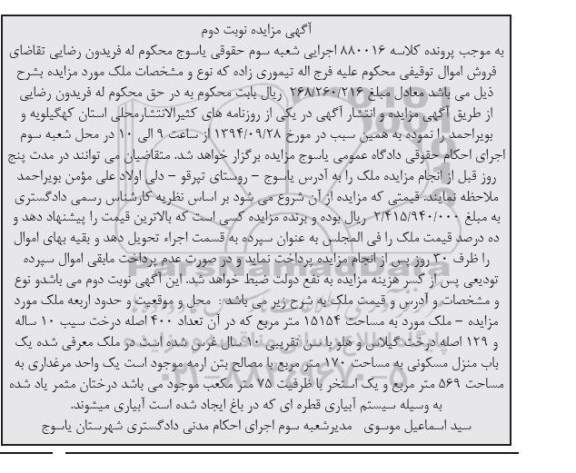 آگهی مزایده نوبت دوم
به موجب پرونده کلاسه ۸۸۰۰۱۶ اجرایی شعبه سوم حقوقی یاسوج محکوم له فریدون رضایی تقاضای
فروش اموال توقیفی محکوم علیه فرج اله تیموری زاده که نوع و مشخصات ملک مورد مزایده بشرح
ذیل می باشد معادل مبلغ ۲۶۸/۲۶۰/۲۱۶ ریال بابت محکوم به در حق محکوم له فریدون رضایی
از طریق آگهی مزایده و انتشار آگهی در یکی از روزنامه های کثیرالانتشارمحلی استان کهگیلویه و
بویراحمد را نموده به همین سبب در مورخ ۱۳۹۴/۰۹/۲۸ از ساعت ۹ الی ۱۰ در محل شعبه سوم
اجرای احکام حقوقی دادگاه عمومی یاسوج مزایده برگزار خواهد شد. متقاضیان می توانند در مدت پنج
روز قبل از انجام مزایده ملک را به آدرس یاسوج - روستای تپرقو - دلی اولاد علی مؤمن بویراحمد
ملاحظه نمایند. قیمتی که مزایده از آن شروع می شود بر اساس نظریه کارشناس رسمی دادگستری
به مبلغ ۲/۴۱۵/۹۴۰/۰۰۰ ریال بوده و برنده مزایده کسی است که بالاترین قیمت را پیشنهاد دهد و
ده درصد قیمت ملک را فی المجلس به عنوان سپرده به قسمت اجراء تحویل دهد و بقیه بهای اموال
را ظرف ۳۰ روز پس از انجام مزایده پرداخت نماید و در صورت عدم پرداخت مابقی اموال سپرده
تودیعی پس از کسر هزینه مزایده به نفع دولت ضبط خواهد شد. این آگهی نوبت دوم می باشدو نوع
و مشخصات و آدرس و قیمت ملک به شرح زیر می باشد : محل و موقعیت و حدود اربعه ملک مورد
مزایده - ملک مورد به مساحت ۱۵۱۵۴ متر مربع که در آن تعداد ۴۰۰ اصله درخت سیب ۱۰ ساله
و ۱۲۹ اصله درخت گیلاس و هلو با سن تقریبی ۱۰ سال غرس شده است در ملک معرفی شده یک
باب منزل مسکونی به مساحت ۱۷۰ متر مربع با مصالح بتن ارمه موجود است یک واحد مرغداری به
مساحت ۵۶۹ متر مربع و یک استخر با ظرفیت ۷۵ متر مکعب موجود می باشد درختان مثمر یاد شده
به وسیله سیستم آبیاری قطره ای که در باغ ایجاد شده است آبیاری میشوند.
سید اسماعیل موسوی   مدیرشعبه سوم اجرای احکام مدنی دادگستری شهرستان یاسوج
ParsNamadData